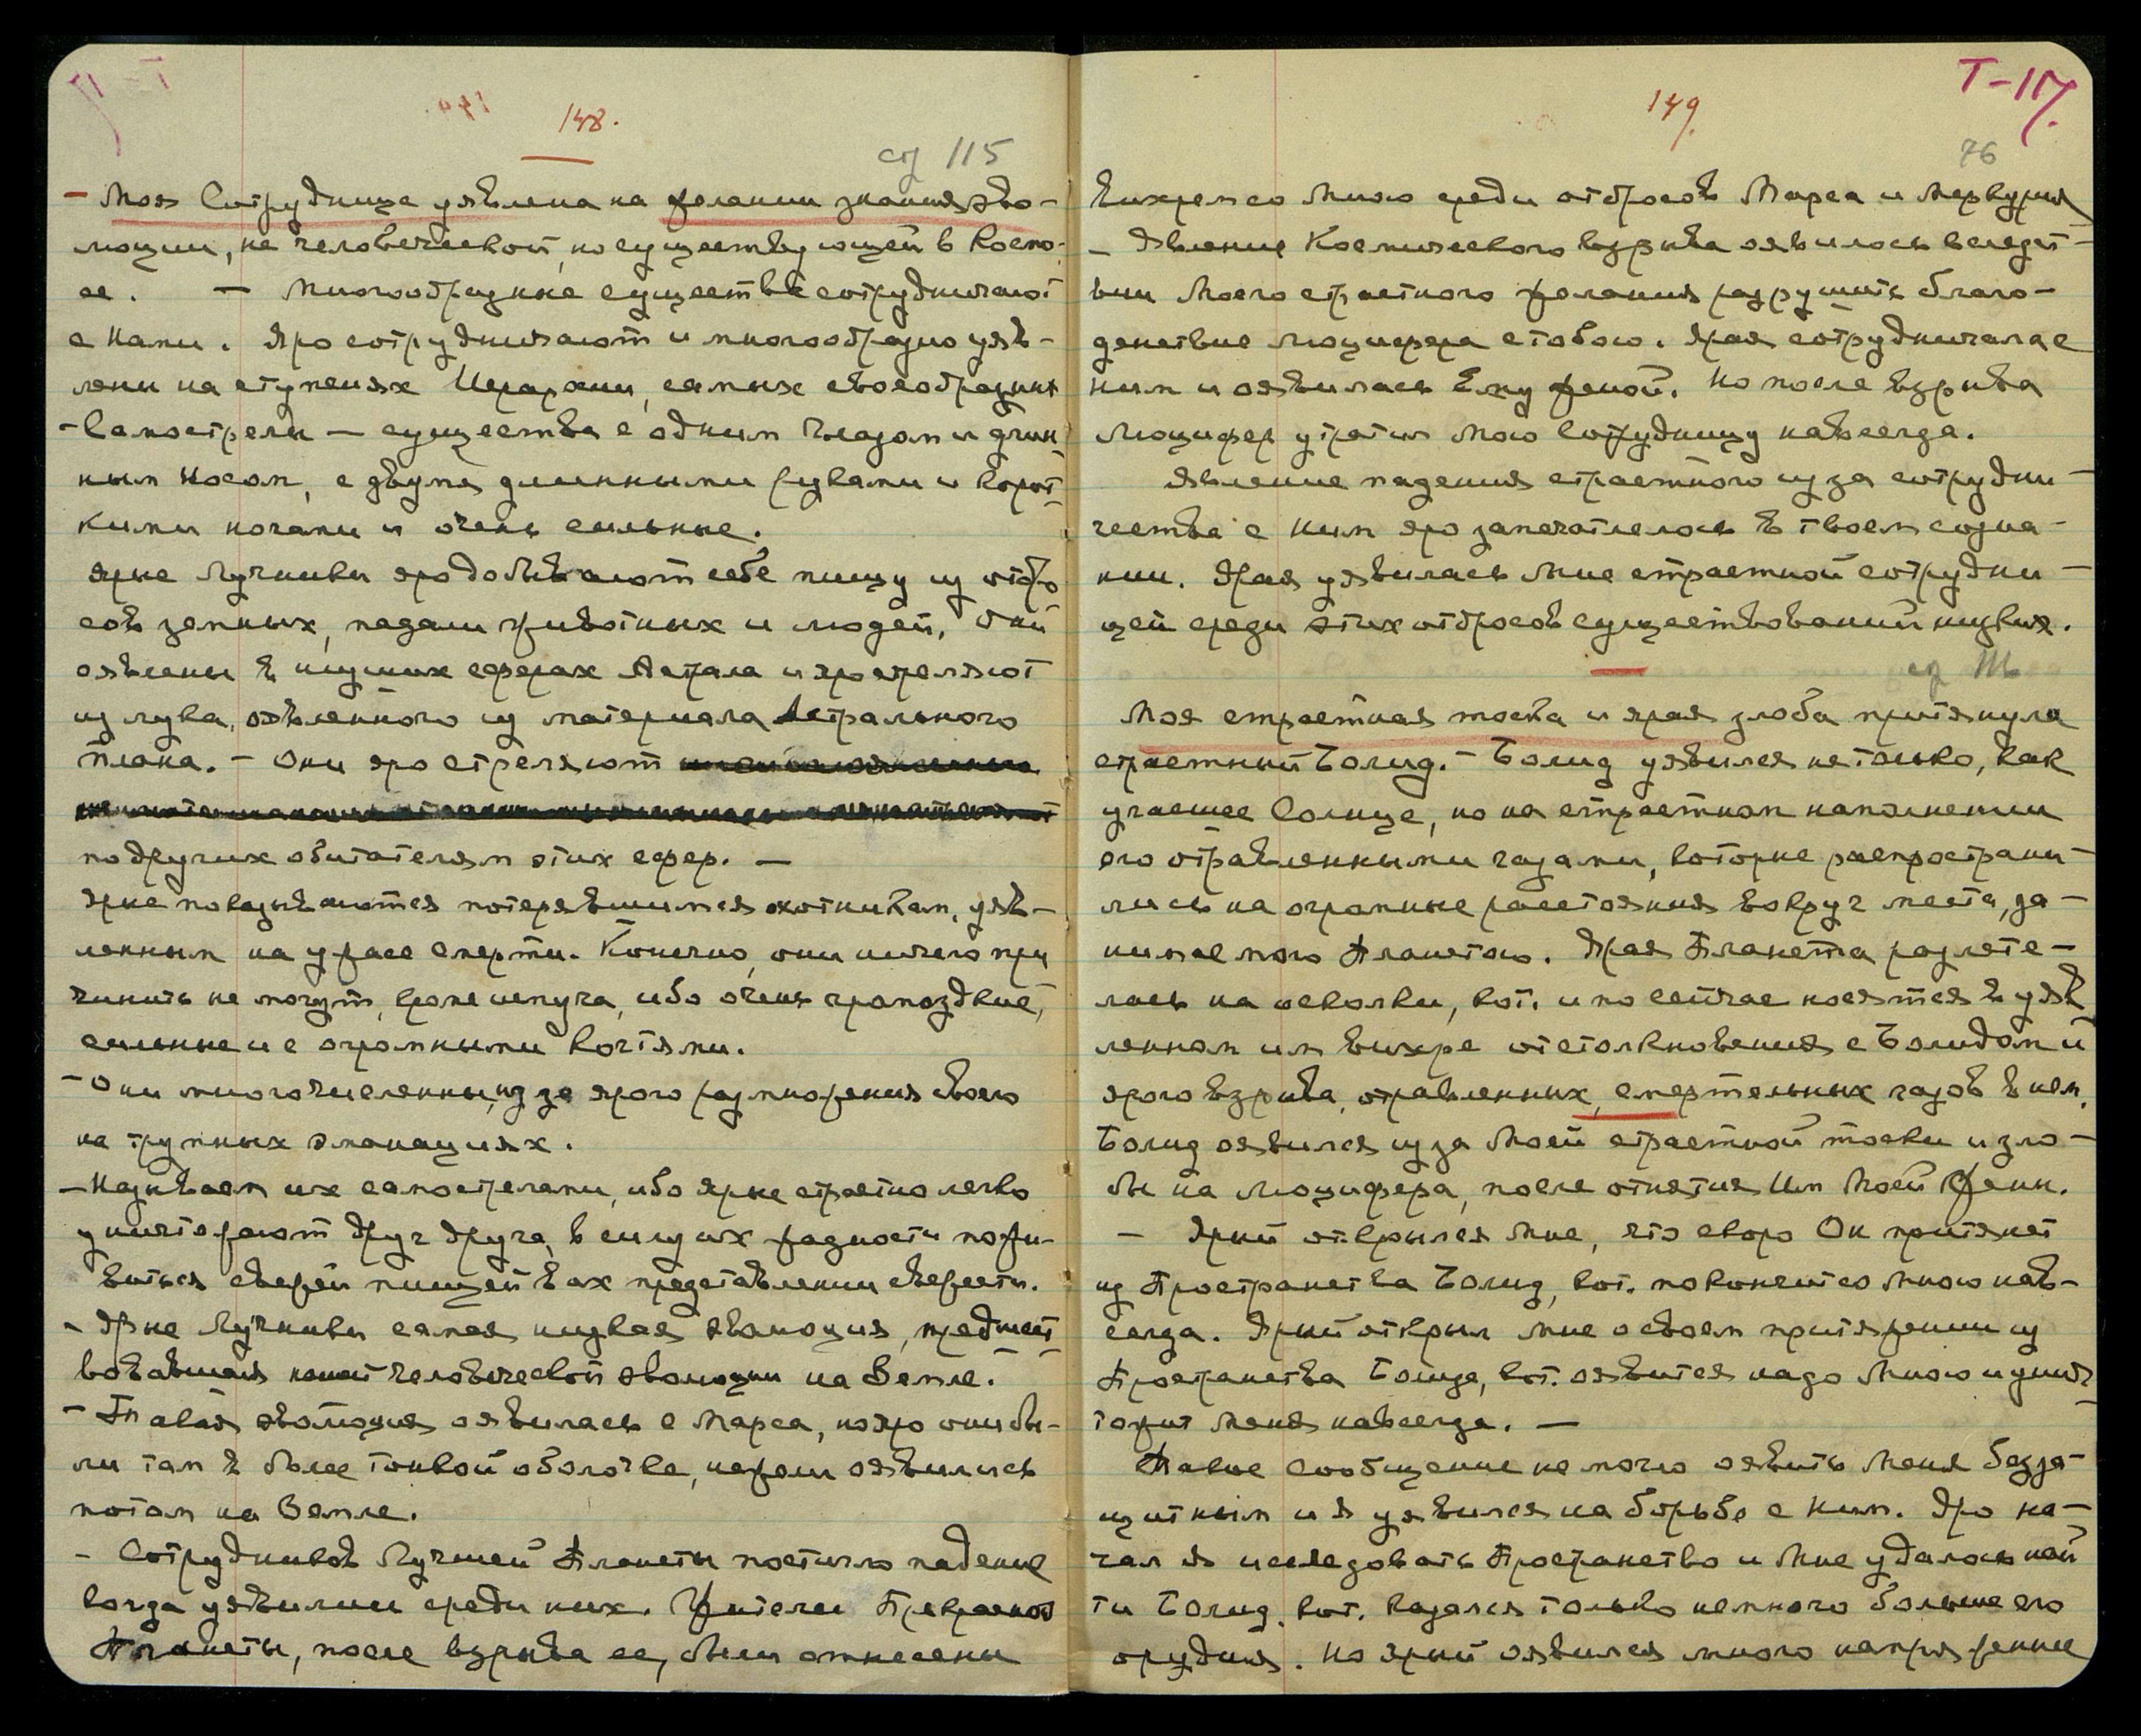 148.
стр 115
– Моя Сотрудница уявлена на желании знания эво-
люции, не человеческой, но существующей в Космо-
се. – Многообразные существа сотрудничают
с Нами. Яро сотрудничают и многообразно уяв-
лены на ступенях Иерархии, самых своеобразных
– Самострелы – существа с одним глазом и длин
ным носом, с двумя длинными руками и корот-
кими ногами и очень сильные.
Ярые Лучники яро добывают себе пищу из отбро
сов земных, падали животных и людей. Они
оявлены в низших сферах Астрала и яро стреляют
из лука, оявленного из материала Астрального
плана. – Они яро стреляют
по другим обитателям этих сфер. –
Ярые показываются потерявшимся охотникам, уяв-
ленным на ужасе смерти. Конечно, они ничего при
чинить не могут, кроме испуга, ибо очень громоздкие,
сильные и с огромными когтями.
– Они многочисленны из за ярого размножения своего
на трупных эманациях.
– Называем их самострелами, ибо ярые страстно легко
уничтожают друг друга, в силу их жадности пожи-
виться свежей пищей в их представлении свежести.
– Ярые Лучники самая низкая эволюция, предшест
вовавшая нашей человеческой эволюции на Земле.
– Такая эволюция оявилась с Марса, но яро они бы-
ли там в более тонкой оболочке, нежели оявились
потом на Земле.
– Сотрудников Лучшей Планеты постигло падение
когда уявились среди них. Жители Прекрасной
Планеты, после взрыва ее, были отнесены
Т-117.
149.
76
вихрем со Мною среди отбросов Марса и Меркурия
– Явление Космического взрыва оявилось вследст-
вии Моего страстного желания разрушить благо-
денствие Люцифера с тобою. Ярая сотрудничала с
ним и оявилась Ему женой. Но после взрыва
Люцифер утратил Мою Сотрудницу навсегда.
Явление падения страстного из за сотрудни-
чества с Ним яро запечатлелось в твоем созна-
нии. Ярая уявилась Мне страстной сотрудни-
цей среди этих отбросов существований низких.
стр
Моя страстная тоска и ярая злоба притянула
страстный Болид. – Болид уявился не только, как
угасшее Солнце, но на страстном наполнении
его отравленными газами, которые распространи-
лись на огромные расстояния вокруг места, за-
нимаемого Планетою. Ярая Планета разлете-
лась на осколки, кот. и по сейчас носятся в уяв
ленном им вихре от столкновения с Болидом и
ярого взрыва, отравленных, смертельных газов в нем.
Болид оявился из за Моей страстной тоски и зло-
бы на Люцифера, после отнятия Им Моей Жены.
– Ярый открылся Мне, что скоро Он притянет
из Пространства Болид, кот. покончит со Мною нав-
сегда. Ярый открыл Мне о своем притяжении из
Пространства Болида, кот. оявится надо Мною и унич-
тожит Меня навсегда. –
Такое сообщение не могло оявить Меня беззa-
щитным и Я уявился на борьбе с Ним. Яро на-
чал Я исследовать Пространство и Мне удалось най
ти Болид, кот. казался только немного больше его
орудия. Но Ярый оявился много напряженнее